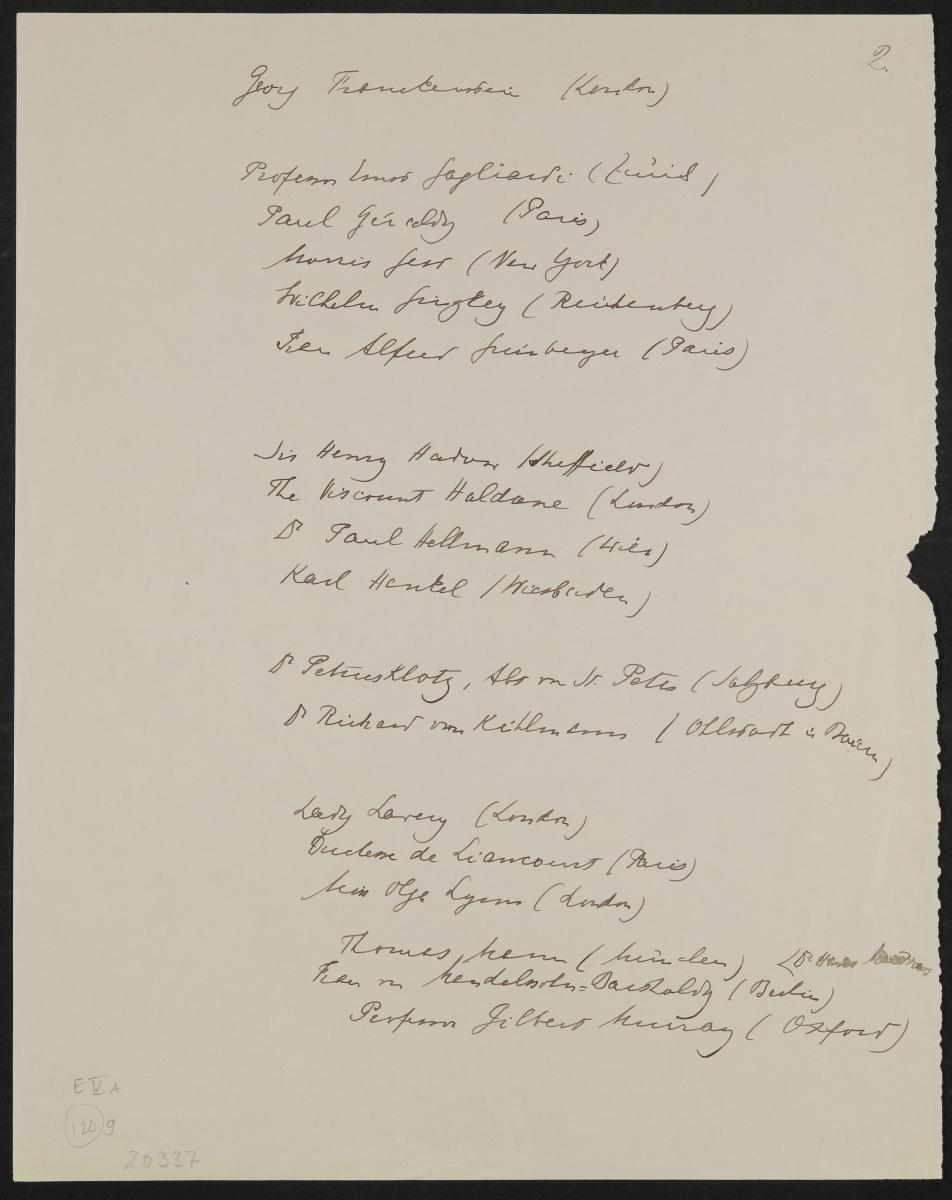 2.
Georg Franckenstein (London)
Professor Ernst Gagliardi (Zürich)
Paul Géraldy (Paris)
Morris Gest (New York)
Wilhelm Ginzkey (Reichenberg)
Frau Alfred Grünberger (Paris)
Sir Henry Hadow (Sheffield)
The Viscount Haldane (London)
Dr Paul Hellmann (Wien)
Karl Henkel (Wiesbaden)
Dr Petrus Klotz, Abt von St. Peter (Salzburg)
Dr Richard von Kühlmann (Ohlstadt in Baiern)
Lady Lavery (London)
Duchesse de Liancourt (Paris)
Miss Olga Lynn (London)
Thomas Mann (München) Dr
Frau von Mendelssohn=Bartholdy (Berlin)
Professor Gilbert Murray (Oxford)
E V A
120 9
20337